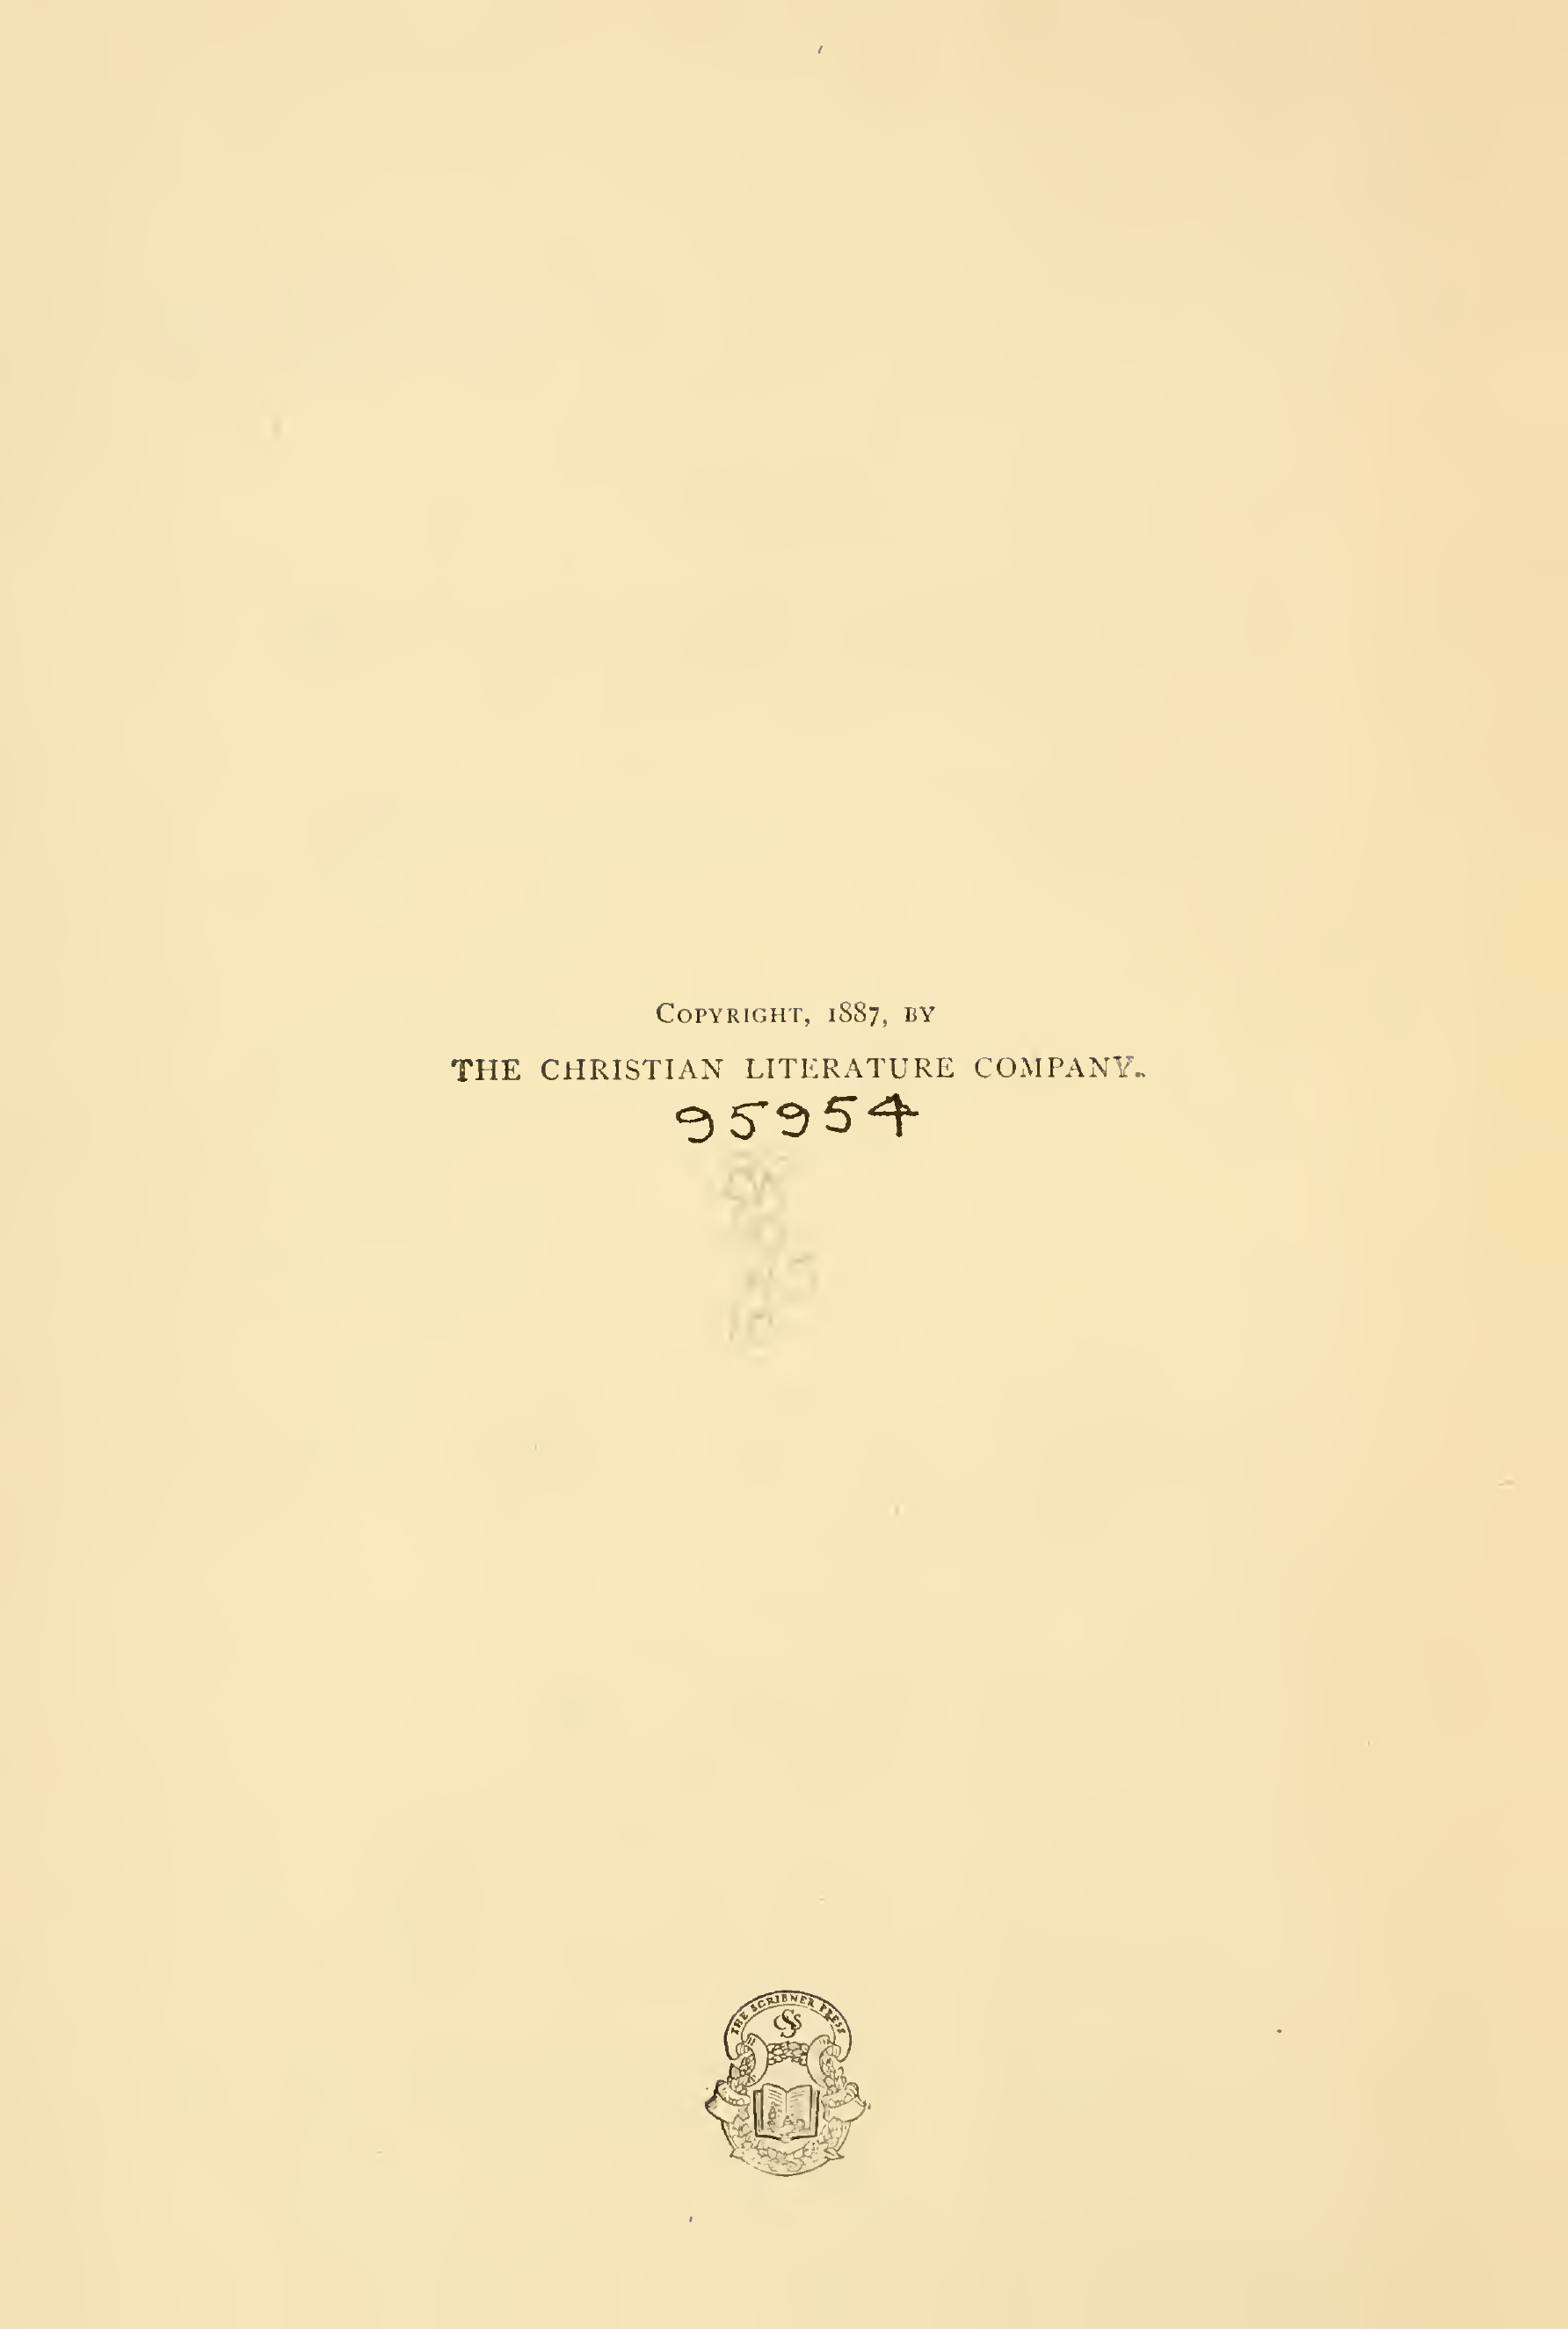 COPYRIGHT, 1887, BY
THE CHRISTIAN LITERATURE COMPANY.
95954
THE SCRIBNER PRESS
CSS